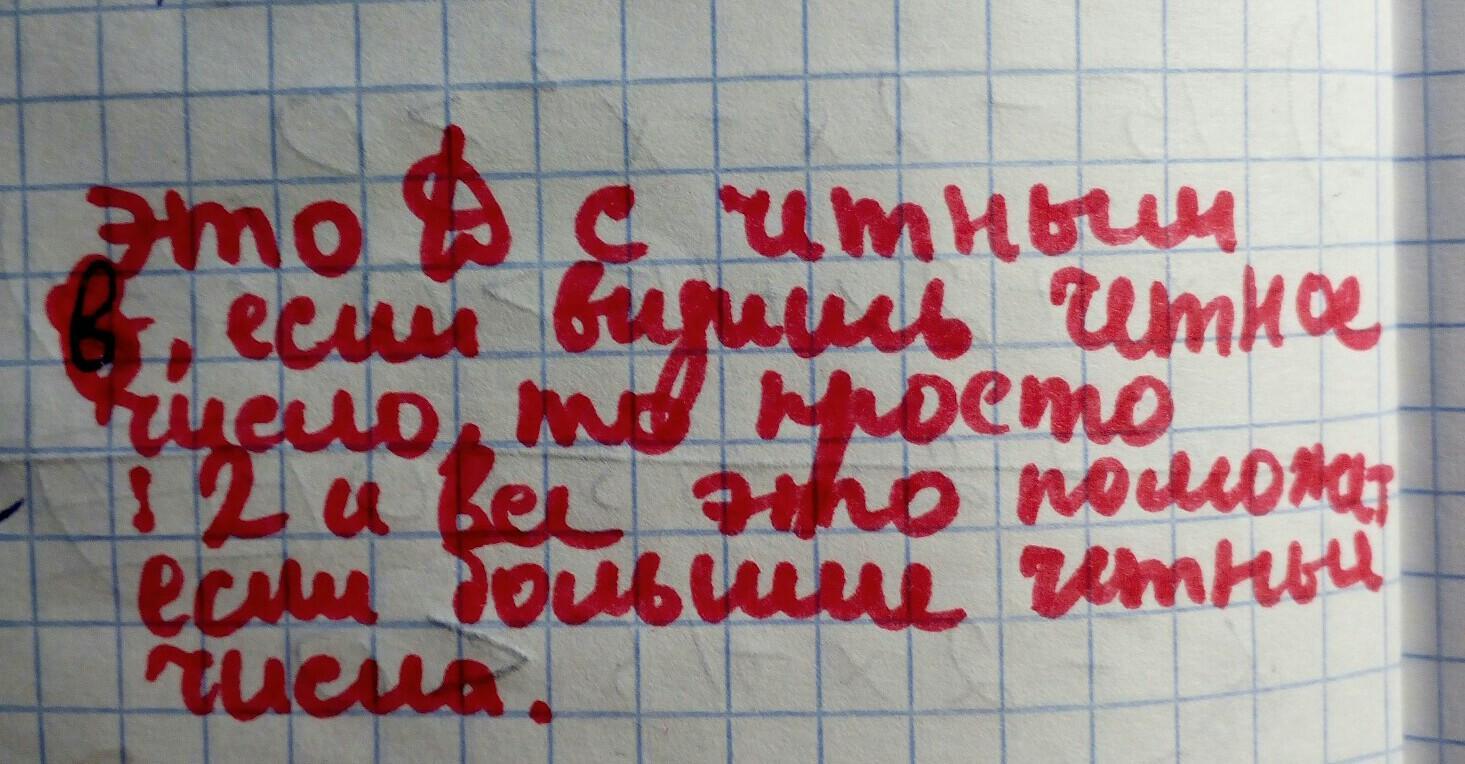 это D с чтным
в, если видишь четное
число, то просто
: 2 и все это поможат
если большие четные
числа.